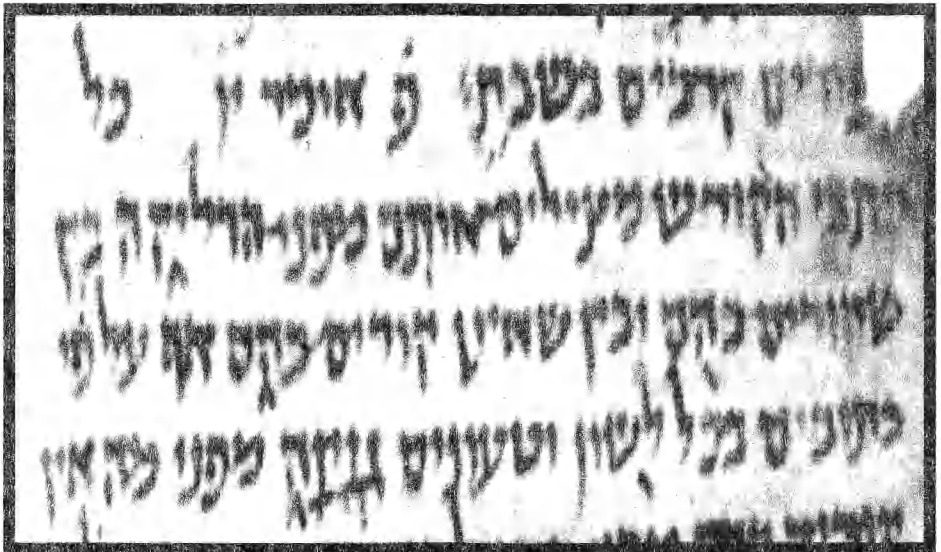 קרבים בשבת פ כל
כתבי הקודש מצילים אותם מפני הדליקה בין
שקורים בהם ובין שאין קורים בהם אף על פי
כתובים בכל לשון וטעונים גניזה מפני מה אין